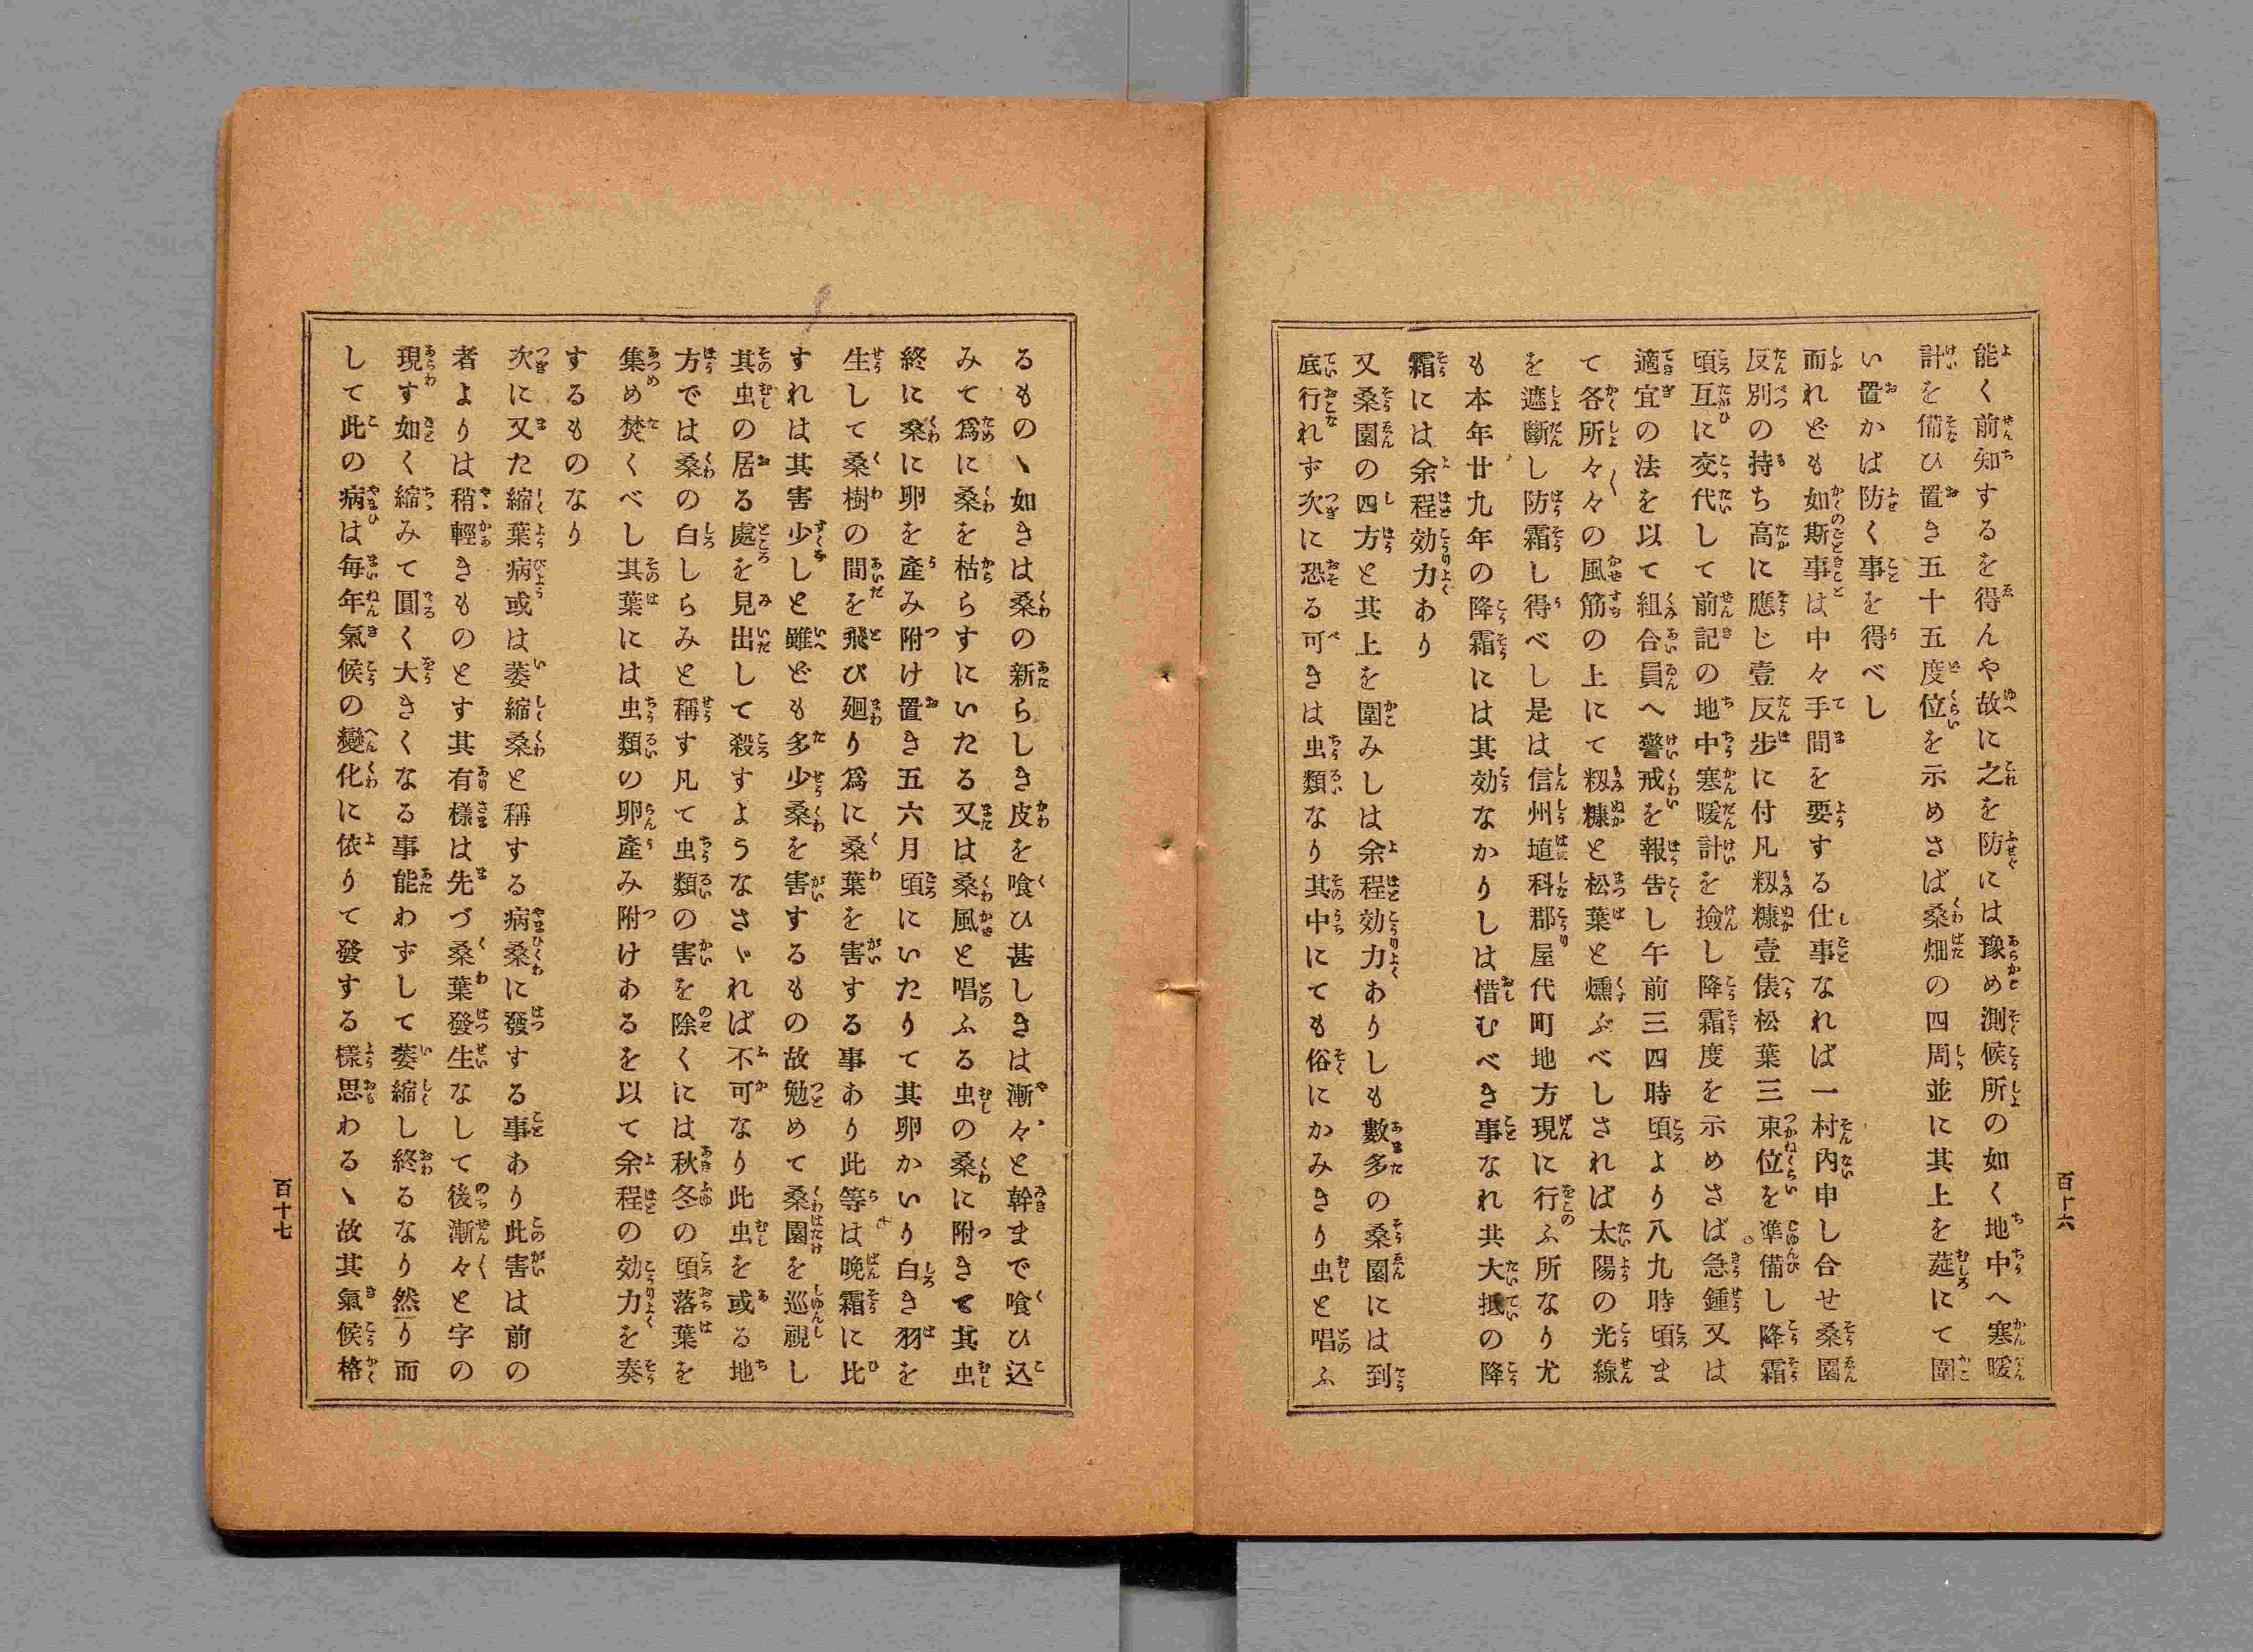 能く前知するを得んや故に之を防には豫め測候所の如く地中へ寒暖
計を備ひ置き五十五度位を示めさば桑畑の四周並に其上を莚にて圍
い置かば防く事を得べし
而れども如斯事は中々手間を要する仕事なれば一村內申し合せ桑園
反別の持ち高に應じ壹反步に付凡籾糠壹俵松葉三束位を準備し降霜
頃互に交代して前記の地中寒暖計を撿し降霜度を示めさば急鍾又は
適宜の法を以て組合員へ警戒を報告し午前三四時頃より八九時頃ま
て各所々々の風筋の上にて籾糠と松葉と燻ぶべしされば太陽の光線
を遮斷し防霜し得べし是は信州埴科郡屋代町地方現に行ふ所なり尤
も本年廿九年の降霜には其効なかりしは惜むべき事なれ共大抵の降
霜には余程効力あり
又桑園の四方と其上を圍みしは余程効力ありしも數多の桑園には到
底行れず次に恐る可きは虫類なり其中にても俗にかみきり虫と唱ふ
百十六
るものヽ如きは桑の新らしき皮を喰ひ甚しきは漸々と幹まで喰ひ込
みて爲に桑を枯らすにいたる又は桑風と唱ふる虫の桑に附きて其虫
終に桑に卵を產み附け置き五六月頃にいたりて其卵かいり白き羽を
生して桑樹の間を飛び廻り爲に桑葉を害する事あり此等は晩霜に比
すれは其害少しと雖ども多少桑を害するもの故勉めて桑園を巡視し
其虫の居る處を見出して殺すようなさヾれば不可なり此虫を或る地
方では桑の白しらみと稱す凡て虫類の害を除くには秋冬の頃落葉を
集め焚くべし其葉には虫類の卵產み附けあるを以て余程の効力を奏
するものなり
次に又た縮葉病或は萎縮桑と稱する病桑に發する事あり此害は前の
者よりは稍輕きものとす其有樣は先づ桑葉發生なして後漸々と字の
現す如く縮みて圓く大きくなる事能わずして萎縮し終るなり然り而
して此の病は每年氣候の變化に依りて發する樣思わるヽ故其氣候格
百十七